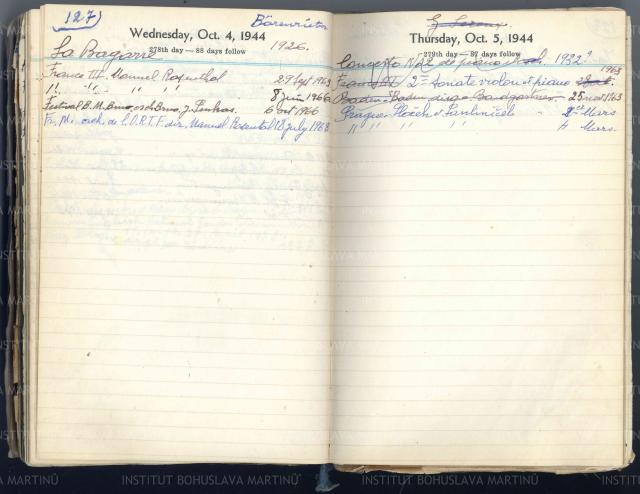 127)
Bärenreiter
Wednesday, Oct. 4, 1944
278th day — 88 days follow
1926.
La Bagarre
France III. Manuel Rosenthal 29 Sept. 1963
" " " " 8 juin 1966
Festival B. M. Brno, J. Pinkas. 6 oct 1966
Fr. M. orch. de l'O.R.T.F. dir. Manuel Rosental 18 july 1968
Thursday, Oct. 5, 1944
279th day — 87 days follow
Concerto No 2 de piano 1932
1963
2me Sonate violon et piano
Baden-Baden 25 1963
Prague Plocek et 2 Mars
" " " " 4 Mars
INSTITUT BOHUSLAVA MARTINŮ